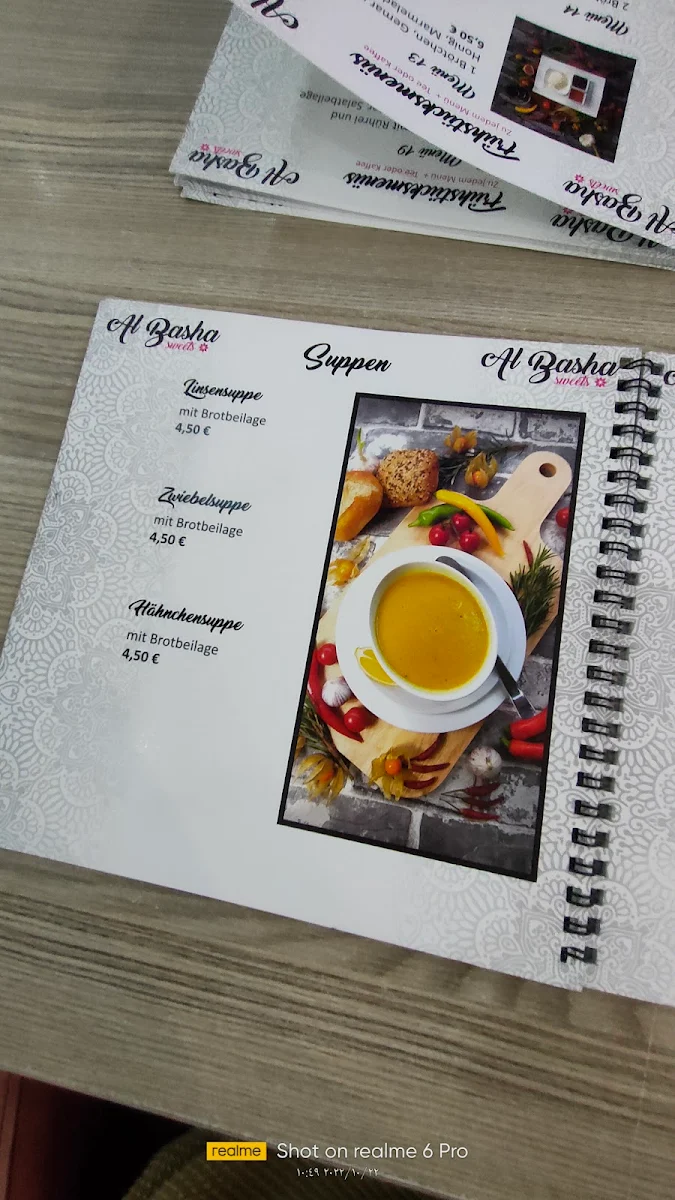 2 Bröt
Menü 14
1 Brötchen, Gemar
Honig, Marmelad
6,50 €
Menü 13
Zu jedem Menü + Tee oder Kaffee
Frühstücksmenüs
Al Basha
sweets
mit Rührei und
Salatbeilage
Menü 19
Zu jedem Menü + Tee oder Kaffee
Frühstücksmenüs
Al Basha
sweets
Al Basha
Al Basha
sweets
Suppen
Al Basha
sweets
Linsensuppe
mit Brotbeilage
4,50 €
Zwiebelsuppe
mit Brotbeilage
4,50 €
Hähnchensuppe
mit Brotbeilage
4,50 €
realme Shot on realme 6 Pro
١٠:٤٩ ٢٠٢٢/١٠/٢٢